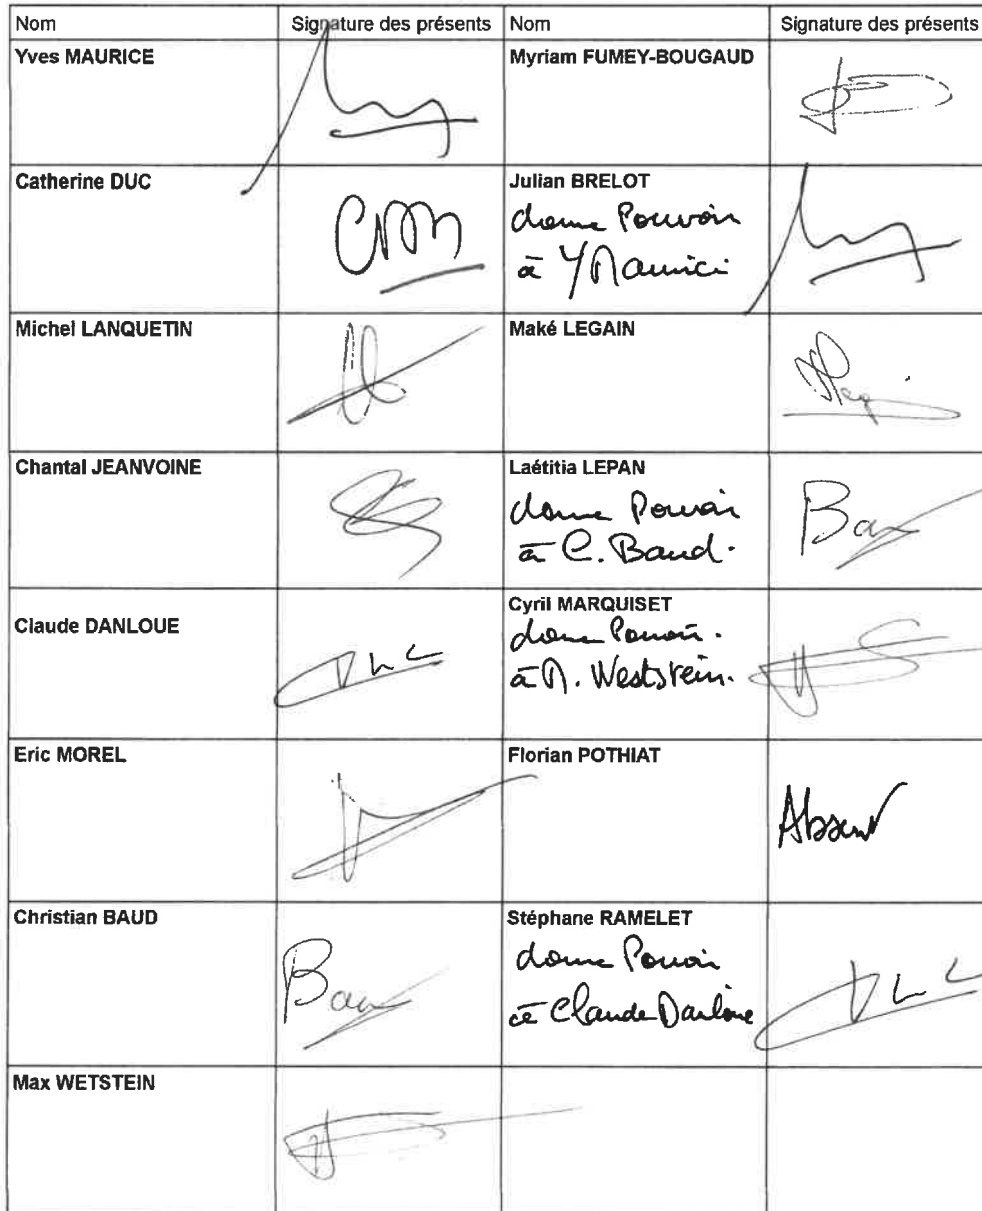 Nom Signature des présents Nom Signature des présents
Yves MAURICE Myriam FUMEY-BOUGAUD
Catherine DUC Julian BRELOT
donne Pouvoir
à Y Maurici
Michel LANQUETIN Maké LEGAIN
Chantal JEANVOINE Laétitia LEPAN
donne Pouvoir
à C. Baud.
Claude DANLOUE Cyril MARQUISET
donne Pouvoir.
à M. Weststein.
Eric MOREL Florian POTHIAT
Absent
Christian BAUD Stéphane RAMELET
donne Pouvoir
à Claude Danloue
Max WETSTEIN